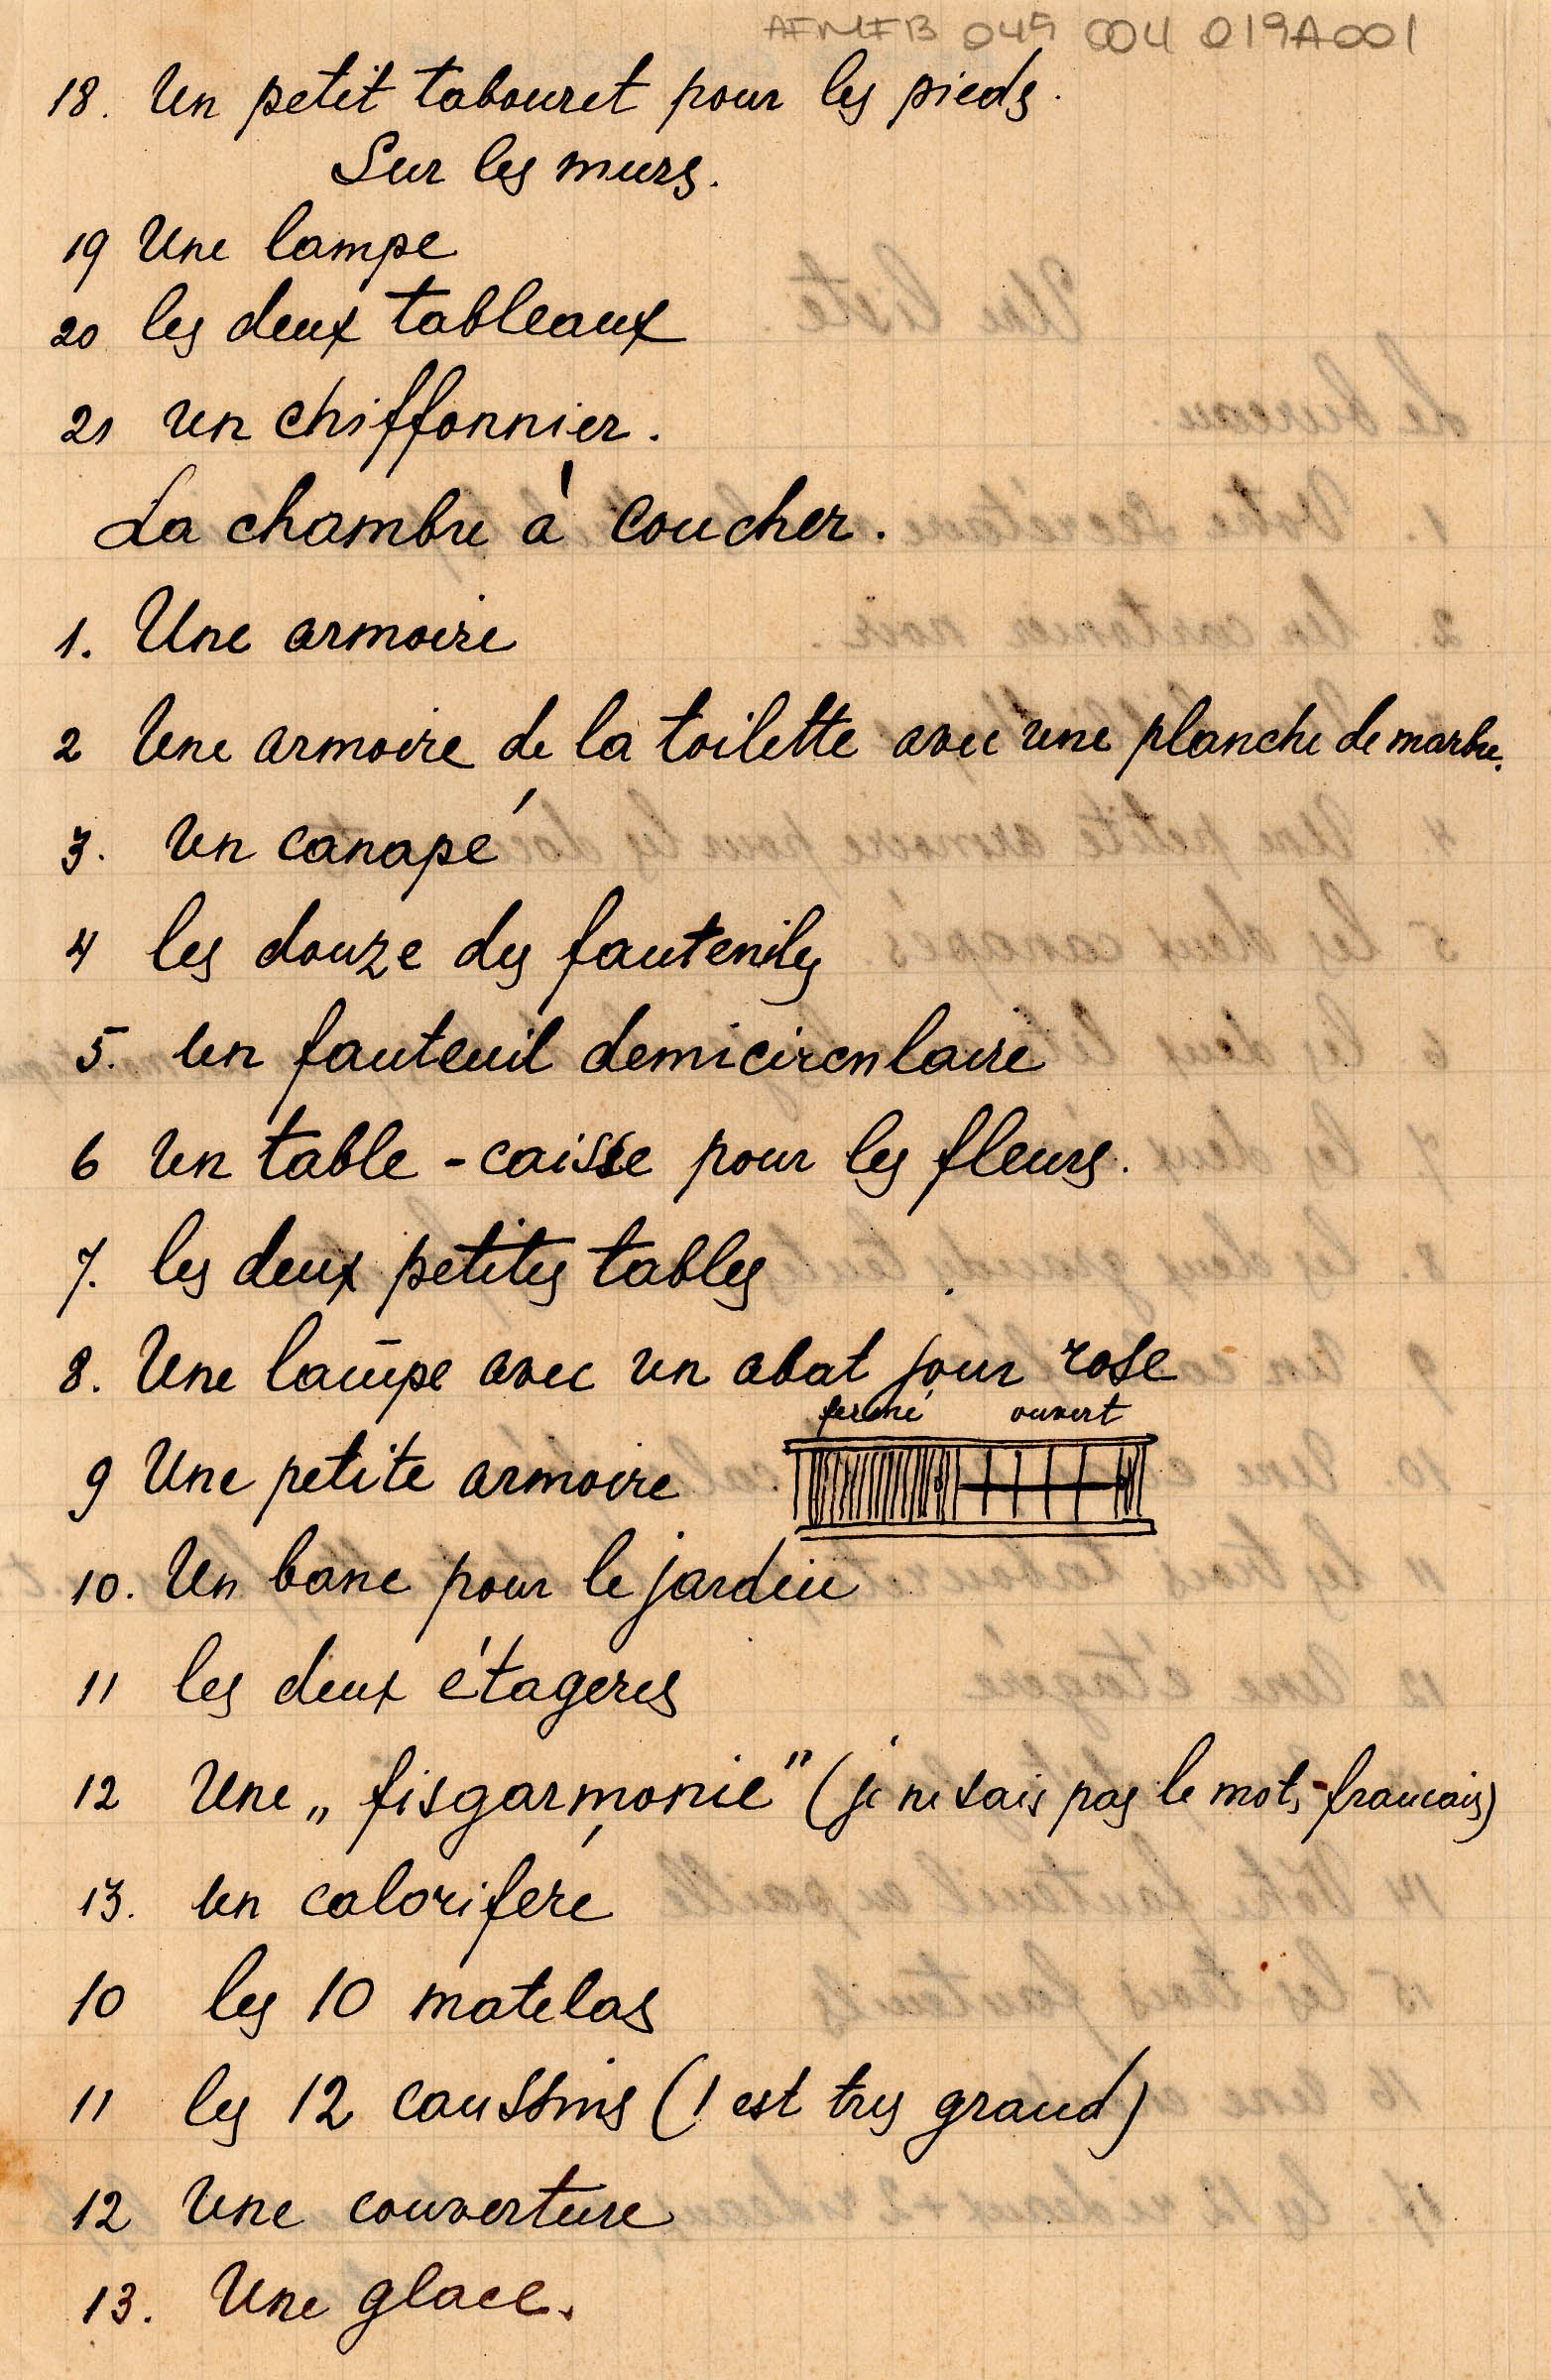 AFMFB 049 004 019A001
18. Un petit tabouret pour les pieds.
Sur les murs.
19 Une lampe
20 les deux tableaux
21 un chiffonnier.
La chambre à coucher.
1. Une armoire
2 Une armoire de la toilette avec une planche de marbre.
3. un canapé
4 les douze des fauteuils
5. un fauteuil demicirculaire
6 un table - caisse pour les fleurs.
7. les deux petites tables
8. Une lampe avec un abat jour rose
fermé ouvert
9 Une petite armoire
10. Un banc pour le jardin
11 les deux étageres
12 Une „fisgarmonie" (je ne sais pas le mot-francais)
13. un calorifére
10 les 10 matelas
11 les 12 caussins (1 est tres grand)
12 Une couverture
13. Une glace.